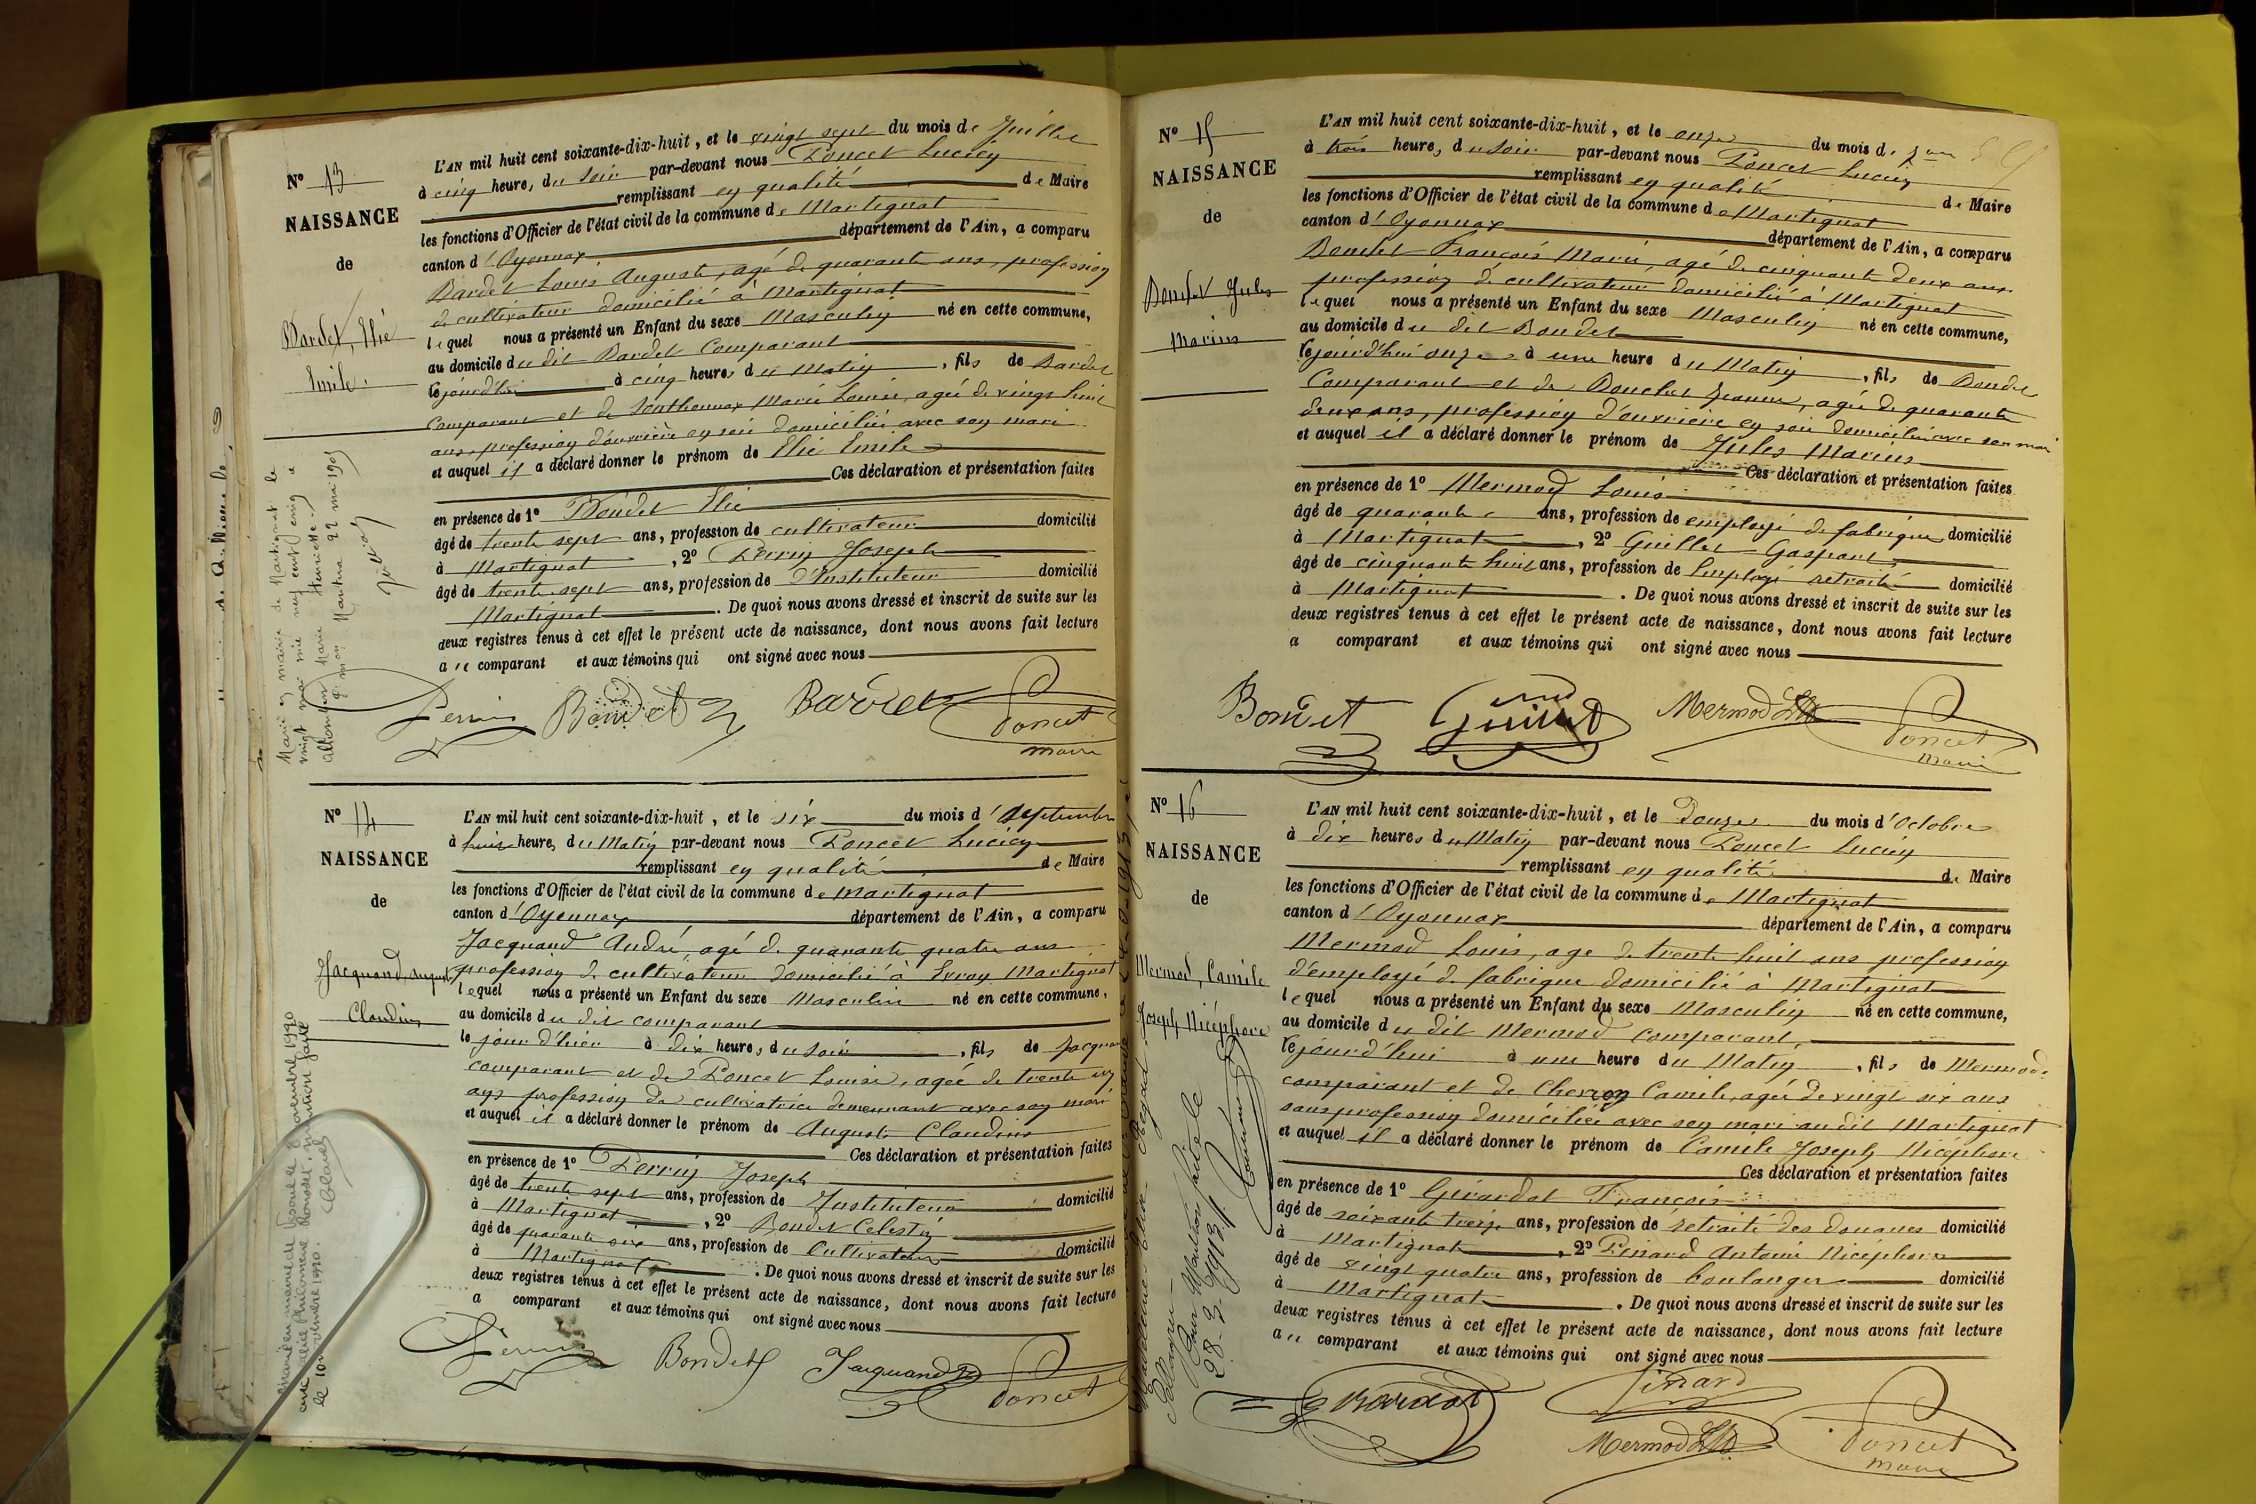 N° 13
NAISSANCE
de
Bardet, Elie
Emile.
L'AN mil huit cent soixante-dix-huit, et le vingt sept du mois de Juillet
à cinq heure, du soir par-devant nous Poncet Lucien
remplissant en qualité de Maire
les fonctions d'Officier de l'état civil de la commune de Martignat
canton d'Oyonnax département de l'Ain, a comparu
Bardet Louis Auguste, agé de quarante ans, profession
de cultivateur domicilié à Martignat
lequel nous a présenté un Enfant du sexe Masculin né en cette commune,
au domicile du dit Bardet Comparant
le jourd'hui à cinq heures du Matin, fils de Bardet
Comparant et de Marie Louise, agée de vingt huit
ans, profession d'ouvrière en soie domiciliée avec son mari
et auquel il a déclaré donner le prénom de Elie Emile
Ces déclaration et présentation faites
en présence de 1° Bondet Elie
âgé de trente sept ans, profession de cultivateur domicilié
à Martignat, 2° Perrin Joseph
âgé de trente sept ans, profession de d'Instituteur domicilié
Martignat. De quoi nous avons dressé et inscrit de suite sur les
deux registres tenus à cet effet le présent acte de naissance, dont nous avons fait lecture
au comparant et aux témoins qui ont signé avec nous
Perrin Bondet Bardet Poncet
maire
Marié en mairie de Martignat le
vingt mai mil neuf cent cinq à
Marie Henriette.
Nantua 22 mai 1905
N° 14
NAISSANCE
de
Jacquand, August
Claudius
L'AN mil huit cent soixante-dix-huit, et le six du mois d'Septembre
à huit heure, du Matin par-devant nous Poncet Lucien
remplissant en qualité de Maire
les fonctions d'Officier de l'état civil de la commune de Martignat
canton d'Oyonnax département de l'Ain, a comparu
Jacquand André, agé de quarante quatre ans
profession de cultivateur domicilié à Martignat
lequel nous a présenté un Enfant du sexe Masculin né en cette commune,
au domicile du dit comparant
le jour d'hier à dix heure, du soir, fils de Jacquand
comparant et de Poncet Louise, agée de trente un
ans profession de cultivatrice demeurant avec son mari
et auquel il a déclaré donner le prénom de Auguste Claudius
Ces déclaration et présentation faites
en présence de 1° Perrin Joseph
âgé de trente sept ans, profession de Instituteur domicilié
à Martignat, 2° Bondet Celestin
âgé de quarante six ans, profession de Cultivateur domicilié
à Martignat. De quoi nous avons dressé et inscrit de suite sur les
deux registres tenus à cet effet le présent acte de naissance, dont nous avons fait lecture
a comparant et aux témoins qui ont signé avec nous
Perrin Bondet Jacquand Poncet
novembre 1920
Philomène mention faite
le 10 novembre 1920.
N° 15
NAISSANCE
de
Bondet Jules
Marius
L'AN mil huit cent soixante-dix-huit, et le onze du mois de
à trois heure, du soir par-devant nous Poncet Lucien
remplissant en qualité de Maire
les fonctions d'Officier de l'état civil de la commune de Martignat
canton d'Oyonnax département de l'Ain, a comparu
Bondet François Marie, agé de cinquant deux ans
profession de cultivateur domicilié à Martignat
lequel nous a présenté un Enfant du sexe Masculin né en cette commune,
au domicile du dit Bondet
le jourd'hui onze à une heure du Matin, fils de Bondet
Comparant et de Jeanne, agée de quarante
deux ans, profession d'ouvrière en soie domiciliée avec son mari
et auquel il a déclaré donner le prénom de Jules Marius
Ces déclaration et présentation faites
en présence de 1° Mermod Louis
âgé de quarante ans, profession de employé de fabrique domicilié
à Martignat, 2° Guillet Gaspard
âgé de cinquante huit ans, profession de Employé retraité domicilié
à Martignat. De quoi nous avons dressé et inscrit de suite sur les
deux registres tenus à cet effet le présent acte de naissance, dont nous avons fait lecture
a comparant et aux témoins qui ont signé avec nous
Bondet Guillet Mermod Ls Poncet
maire
N° 16
NAISSANCE
de
Mermod, Camile
Joseph Nicéphore
L'AN mil huit cent soixante-dix-huit, et le Douze du mois d'Octobre
à dix heures du Matin par-devant nous Poncet Lucien
remplissant en qualité de Maire
les fonctions d'Officier de l'état civil de la commune de Martignat
canton d'Oyonnax département de l'Ain, a comparu
Mermod Louis, age de trente huit ans profession
d'employé de fabrique domicilié à Martignat
lequel nous a présenté un Enfant du sexe Masculin né en cette commune,
au domicile du dit Mermod comparant,
le jourd'hui à une heure du Matin, fils de Mermod
comparant et de Camile, agée de vingt six ans
sans profession domiciliée avec son mari audit Martignat
et auquel il a déclaré donner le prénom de Camile Joseph Nicéphore
Ces déclaration et présentation faites
en présence de 1° Girardot François
âgé de soixante treize ans, profession de retraité des douanes domicilié
à Martignat, 2° Pinard Antoine Nicéphore
âgé de vingt quatre ans, profession de boulanger domicilié
à Martignat. De quoi nous avons dressé et inscrit de suite sur les
deux registres tenus à cet effet le présent acte de naissance, dont nous avons fait lecture
au comparant et aux témoins qui ont signé avec nous
Pinard
Mermod Ls Poncet
maire
Pour Mention faite le
28-2-1913